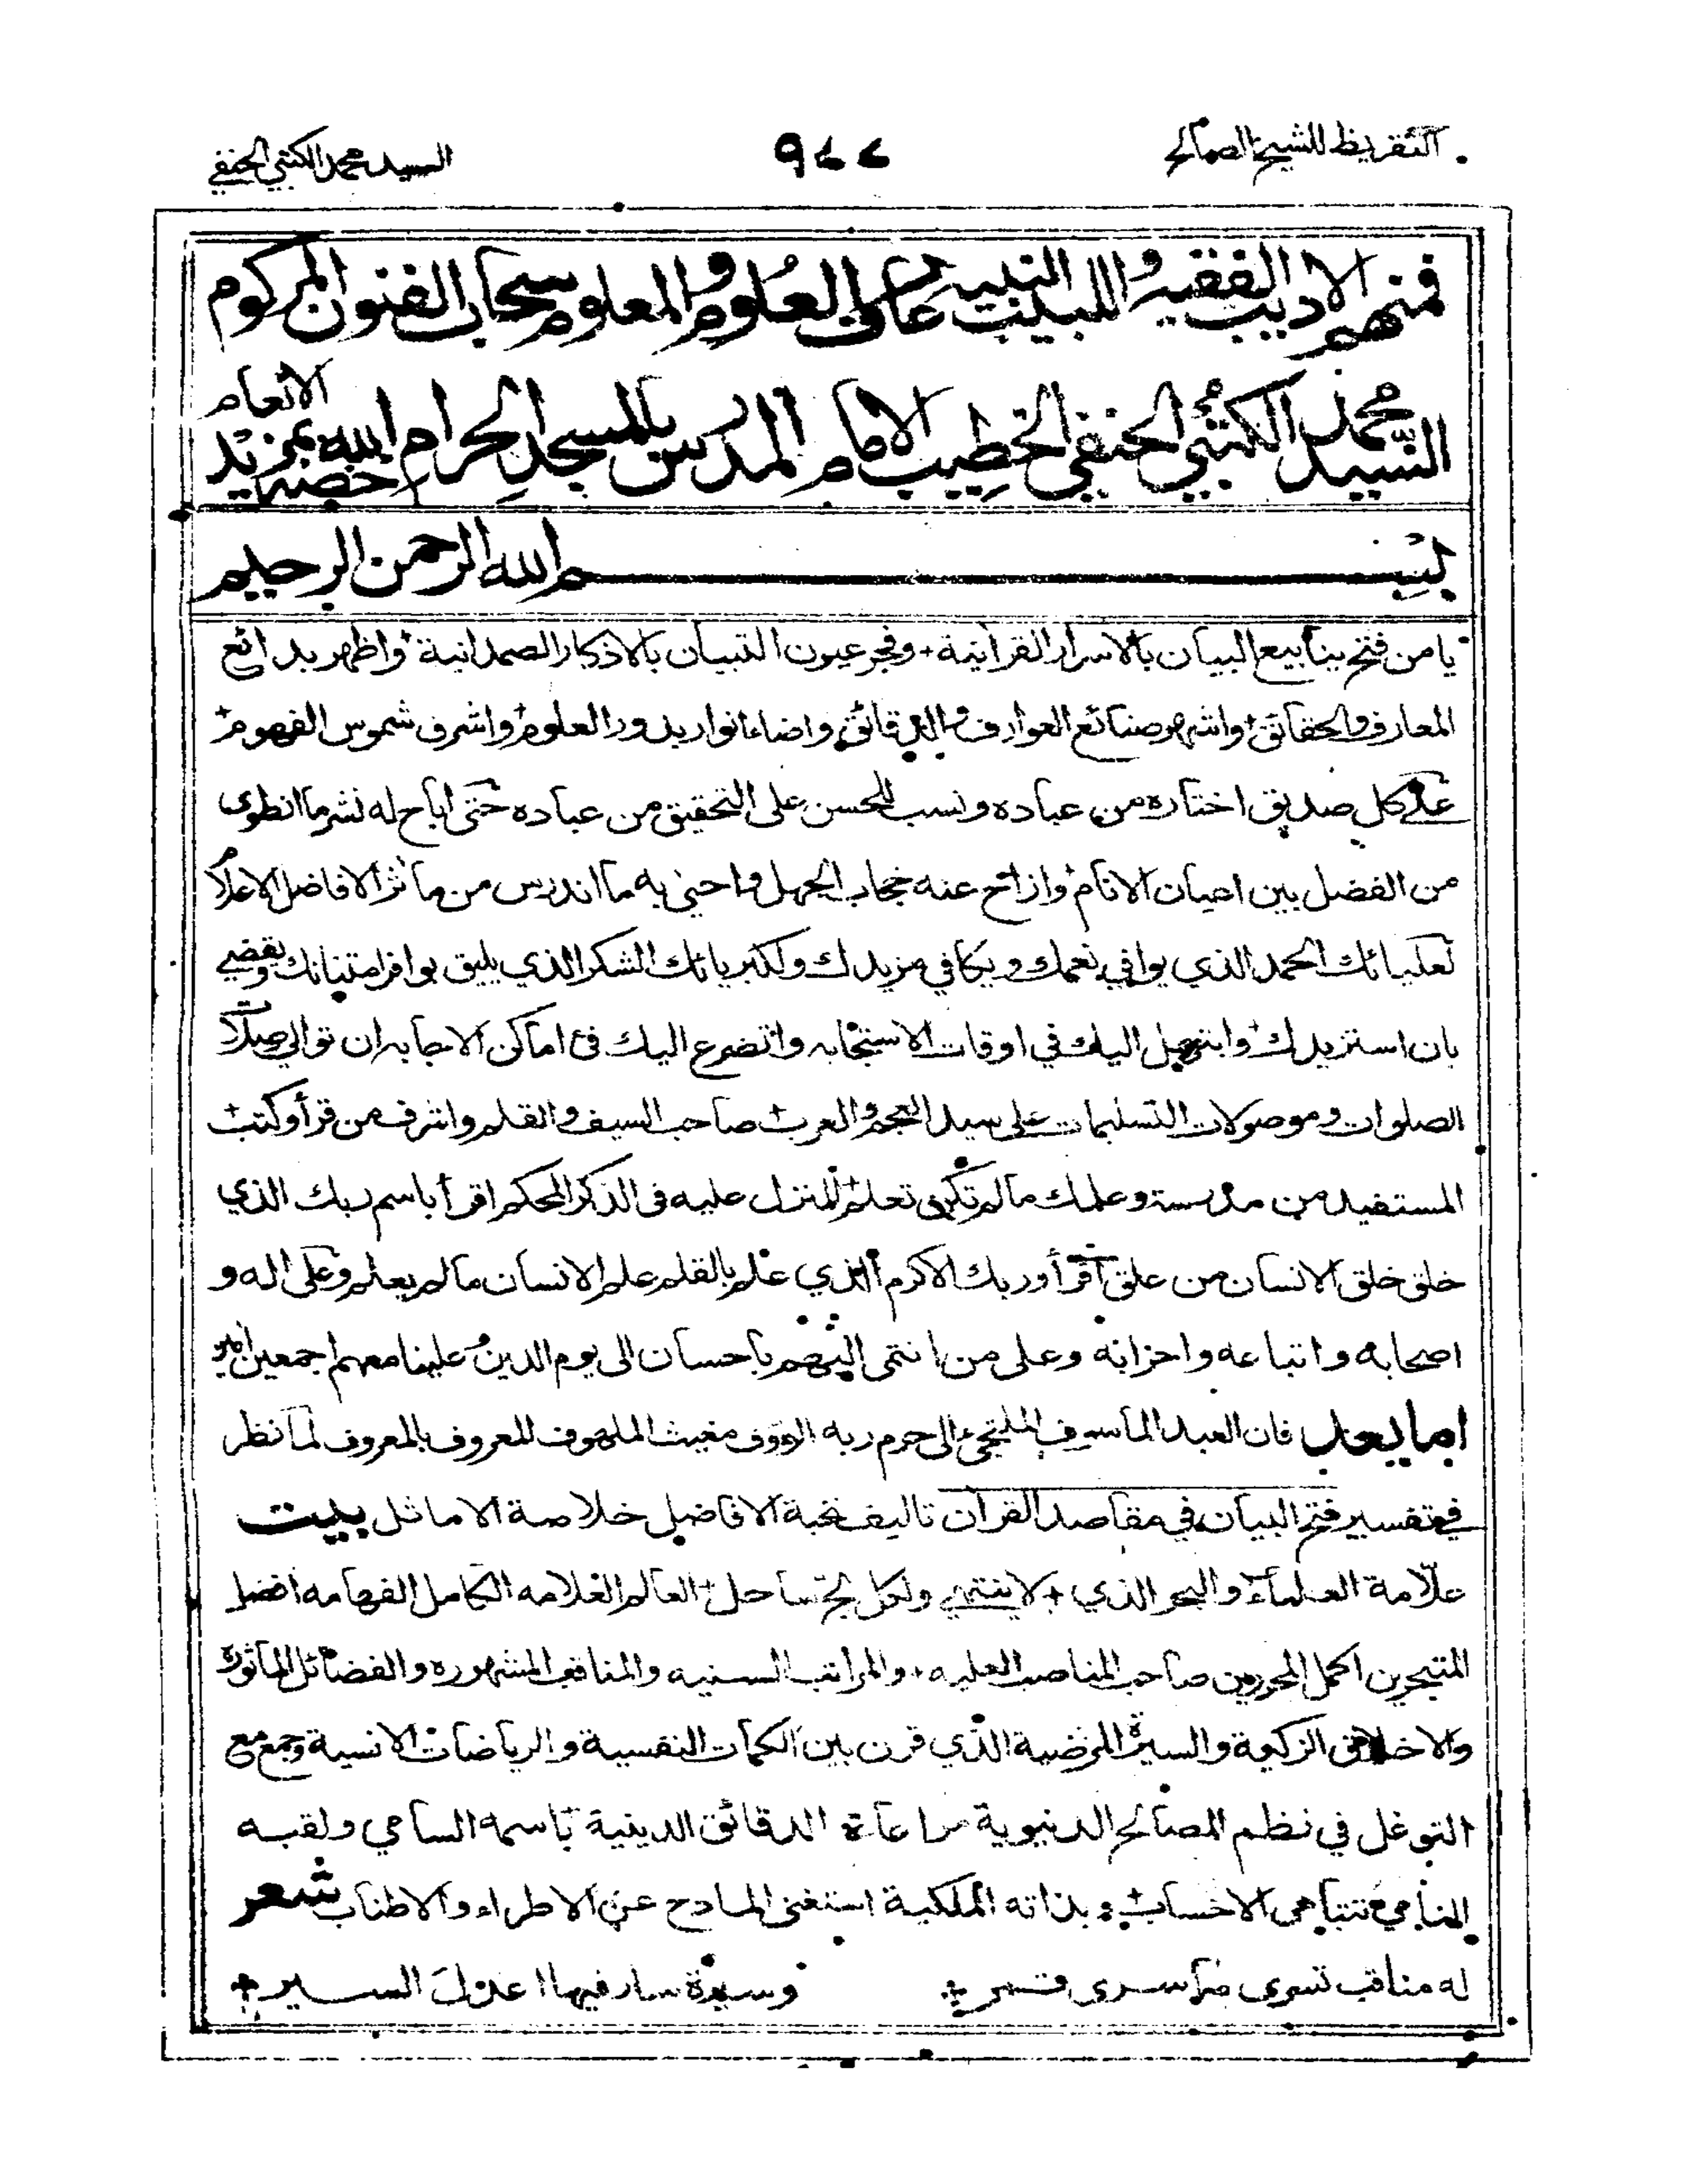 التقريظ للشيخ الصالح
٩٧٧
السيد محمد الكتبي الحنفي
فمنهم الاديب الفقيه واللبيب النبيه العلوم والمعلوم سحاب الفنون المركوم
السيد محمد الكتبي الحنفي الخطيب الامام المدرس بالمسجد الحرام خصه الله بمزيد الانعام
بسم الله الرحمن الرحيم
يا من فتح ينابيع البيان بالاسرار القرآنية + وفجر عيون التبيان بالاذكار الصمدانية واظهر بدائع
المعارف والحقائق واشهر صنائع العوارف والدقائق واضاء انوار بدور العلوم واشرف شموس الفهوم
على كل صديق اختاره من عباده ونسب للحسن على التحقيق من عباده حتى اباح له نشر ما انطوى
من الفضل بين اعيان الانام وازاح عنه حجاب الجهل واحيى به ما اندرس من مآثر الافاضل الاعلام
لعليائك الحمد الذي يوافي نعمك ويكافي مزيدك ولكبريائك الشكر الذي يليق بوافر امتنانك ويقضي
بان استزيدك وابتهل اليك في اوقات الاستجابه واتضرع اليك في اماكن الاجابه ان توالي صلات
الصلوات وموصولات التسليمات على سيد العجم والعرب + صاحب السيف والقلم واشرف من قرأ وكتب +
المستفيد من مدرسة وعلمك ما لم تكن تعلم المنزل عليه في الذكر المحكم اقرأ باسم ربك الذي
خلق خلق الانسان من علق اقرأ وربك الاكرم الذي علم بالقلم علم الانسان ما لم يعلم وعلى اله و
اصحابه واتباعه واحزابه وعلى من انتمى اليهم باحسان الى يوم الدين وعلينا معهم اجمعين امين
اما بعد فان العبد المأسوف الملتجئ الى حرم ربه الرؤف مغيث الملهوف للمعروف بالمعروف لما نظر
في تفسير فتح البيان في مقاصد القرآن تاليف نخبة الافاضل خلاصة الاماثل بيت
علّامة العلماء والبحر الذي + لا ينتهي ولكل بحر ساحل + العالم العلامه الكامل الفهامه افضل
المتبحرين اكمل المحررين صاحب المناصب العليه + والمراتب السنيه والمناقب المشهوره والفضائل المأثورة
والاخلاق الزكية والسيرة المرضية الذي قرن بين الكمات النفسية والرياضات الانسية وجمع مع
التوغل في نظم المصالح الدنيوية مراعاة الدقائق الدينية باسمه السامي ولقبه
النامي تتباهى الاحساب + وبذاته الملكية استغنى المادح عن الاطراء والاطناب شعر
له مناقب تسرى ما سرى قمر وسيرة سار فيها اعدل السير +